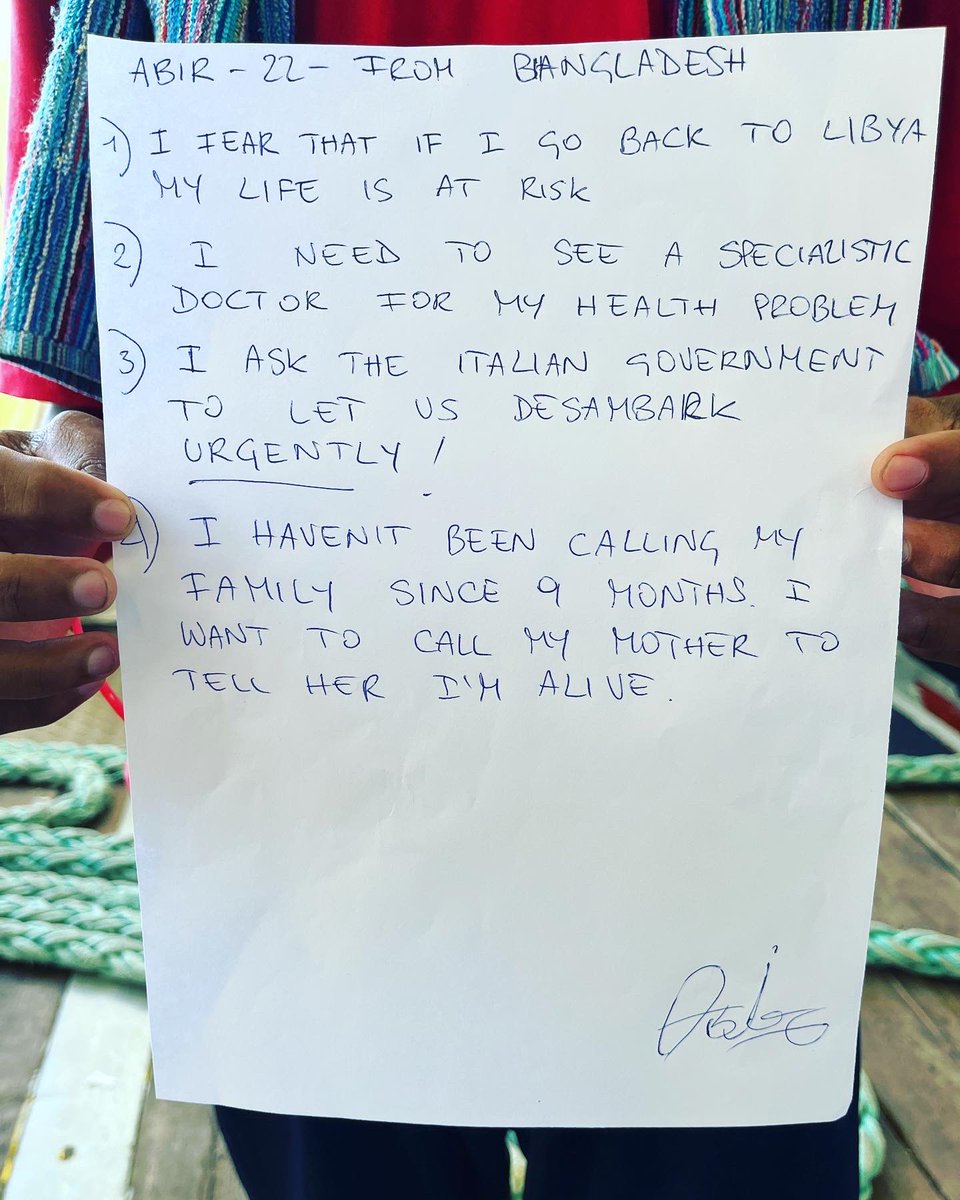 ABIR - 22 - FROM BANGLADESH
1) I FEAR THAT IF I GO BACK TO LIBYA
MY LIFE IS AT RISK
2) I NEED TO SEE A SPECIALISTIC
DOCTOR FOR MY HEALTH PROBLEM
3) I ASK THE ITALIAN GOVERNMENT
TO LET US DESAMBARK
URGENTLY !
4) I HAVEN'T BEEN CALLING MY
FAMILY SINCE 9 MONTHS. I
WANT TO CALL MY MOTHER TO
TELL HER I'M ALIVE.